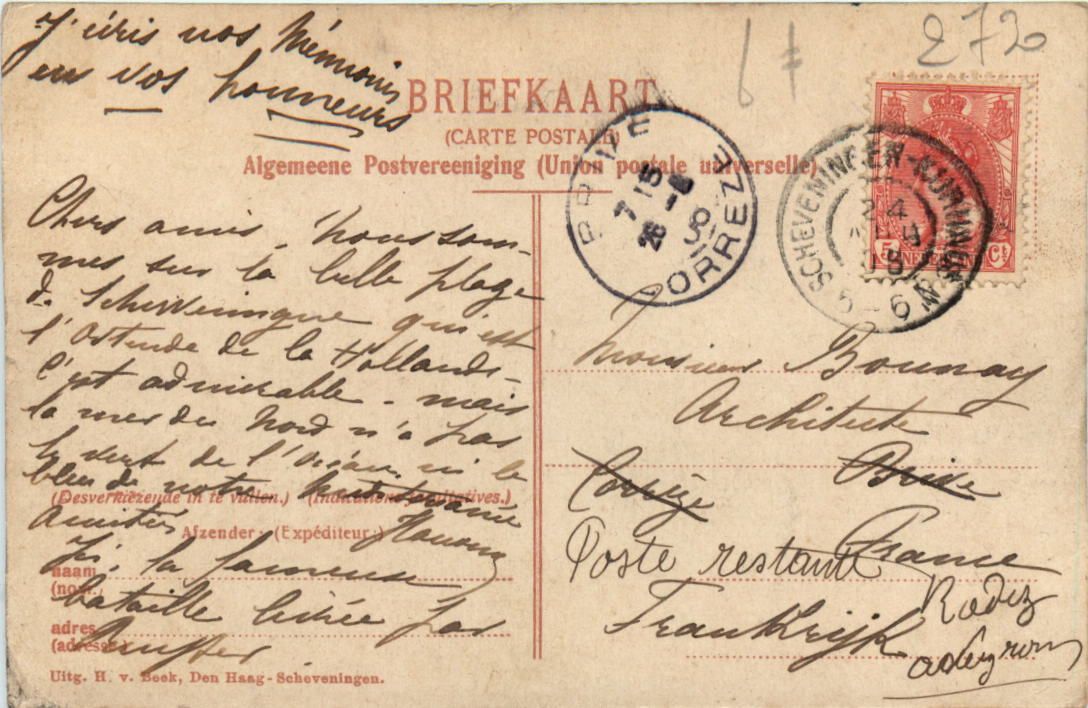 J'écris vos Mémoires
en vos honneurs
6 f
272
BRIEFKAART
(CARTE POSTALE)
Algemeene Postvereeniging (Union postale universelle)
BRIVE
7 15
26
CORREZE
SCHEVENINGEN-KURHAUS
24
5-6 N
5 NEDERLAND Ct
Chers amis, Nous som-
mes sur la belle plage
de Scheveningue qui est
l'Ostende de la Hollande
C'est admirable - mais
la mer du Nord n'a pas
le vert de l'Océan ni le
bleu de notre Méditerranée
(Desverkiezende in te vullen.) (Indications facultatives.)
Amitiés
Afzender: (Expéditeur:)
Ici la fameuse
naam
(nom)
bataille livrée par
adres
(adresse)
Ruyter
Uitg. H. v. Beek, Den Haag-Scheveningen.
Monsieur Bounay
Architecte
Brive
Corrèze
France
Poste restante
Rodez
Frankrijk
aveyron